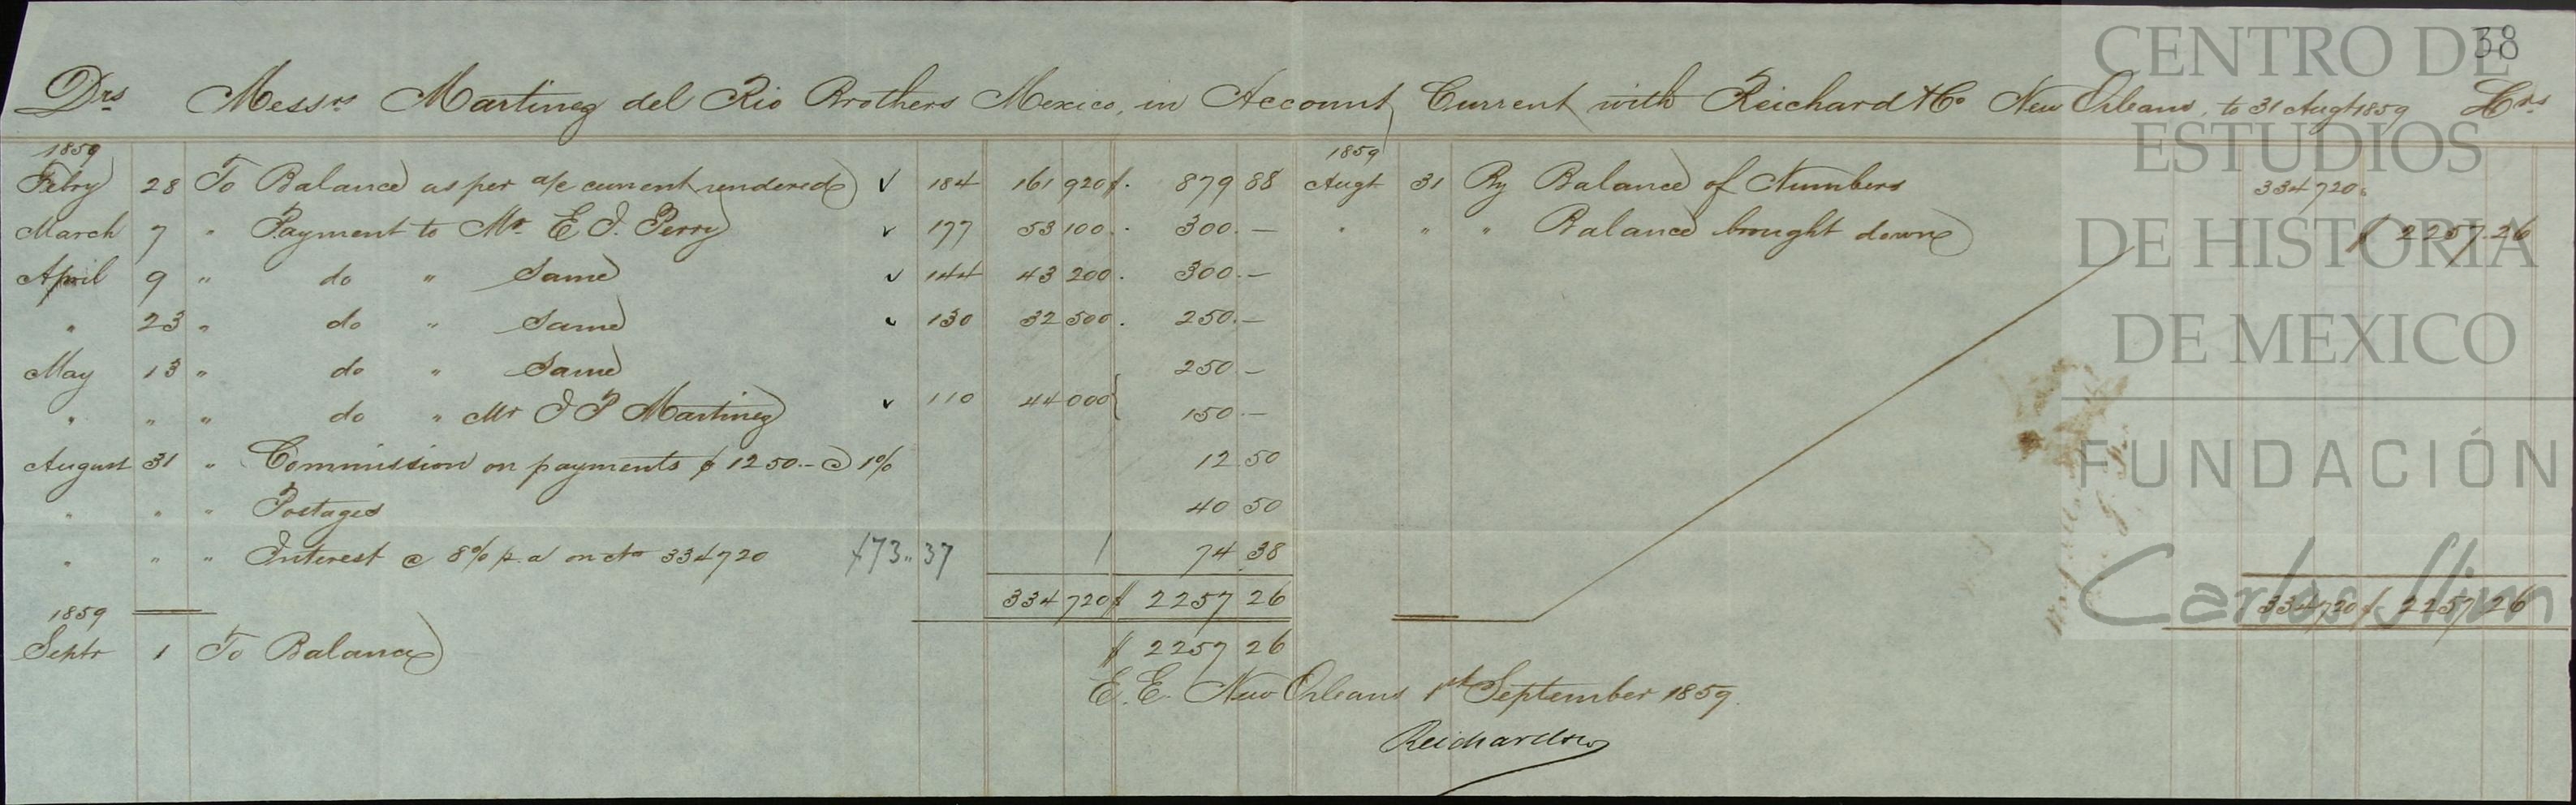 38
Drs Messrs Martinez del Rio Brothers Mexico, in Account Current with Reichard & Co New Orleans, to 31 Augt 1859 Crs
1859
Febry 28 To Balance as per a/c current rendered ✓ 184 161 920 $. 879 88
March 7 " Payment to Mr. E J. Perry ✓ 177 53 100.. 300.—
April 9 " do " Same ✓ 144 43 200. 300.—
" 23 " do " Same ✓ 130 32 500. 250.—
May 13 " do " Same 250.—
" " " do " Mr J P Martinez ✓ 110 44 000 { 150.—
August 31 " Commission on payments $ 1250.- @ 1% 12 50
" " " Postages 40 50
" " " Interest @ 8% p. a on 334720 $73.. 37 74 38
334 720 $ 2257 26
1859
Septr 1 To Balance $ 2257 26
1859
Augt 31 By Balance of Numbers 334 720.
" " " Balance brought down $ 2257.26
334 720 $ 2257 26
E. E. New Orleans 1st September 1859.
Reichard & Co
CENTRO DE
ESTUDIOS
DE HISTORIA
DE MEXICO
FUNDACIÓN
Carlos Slim